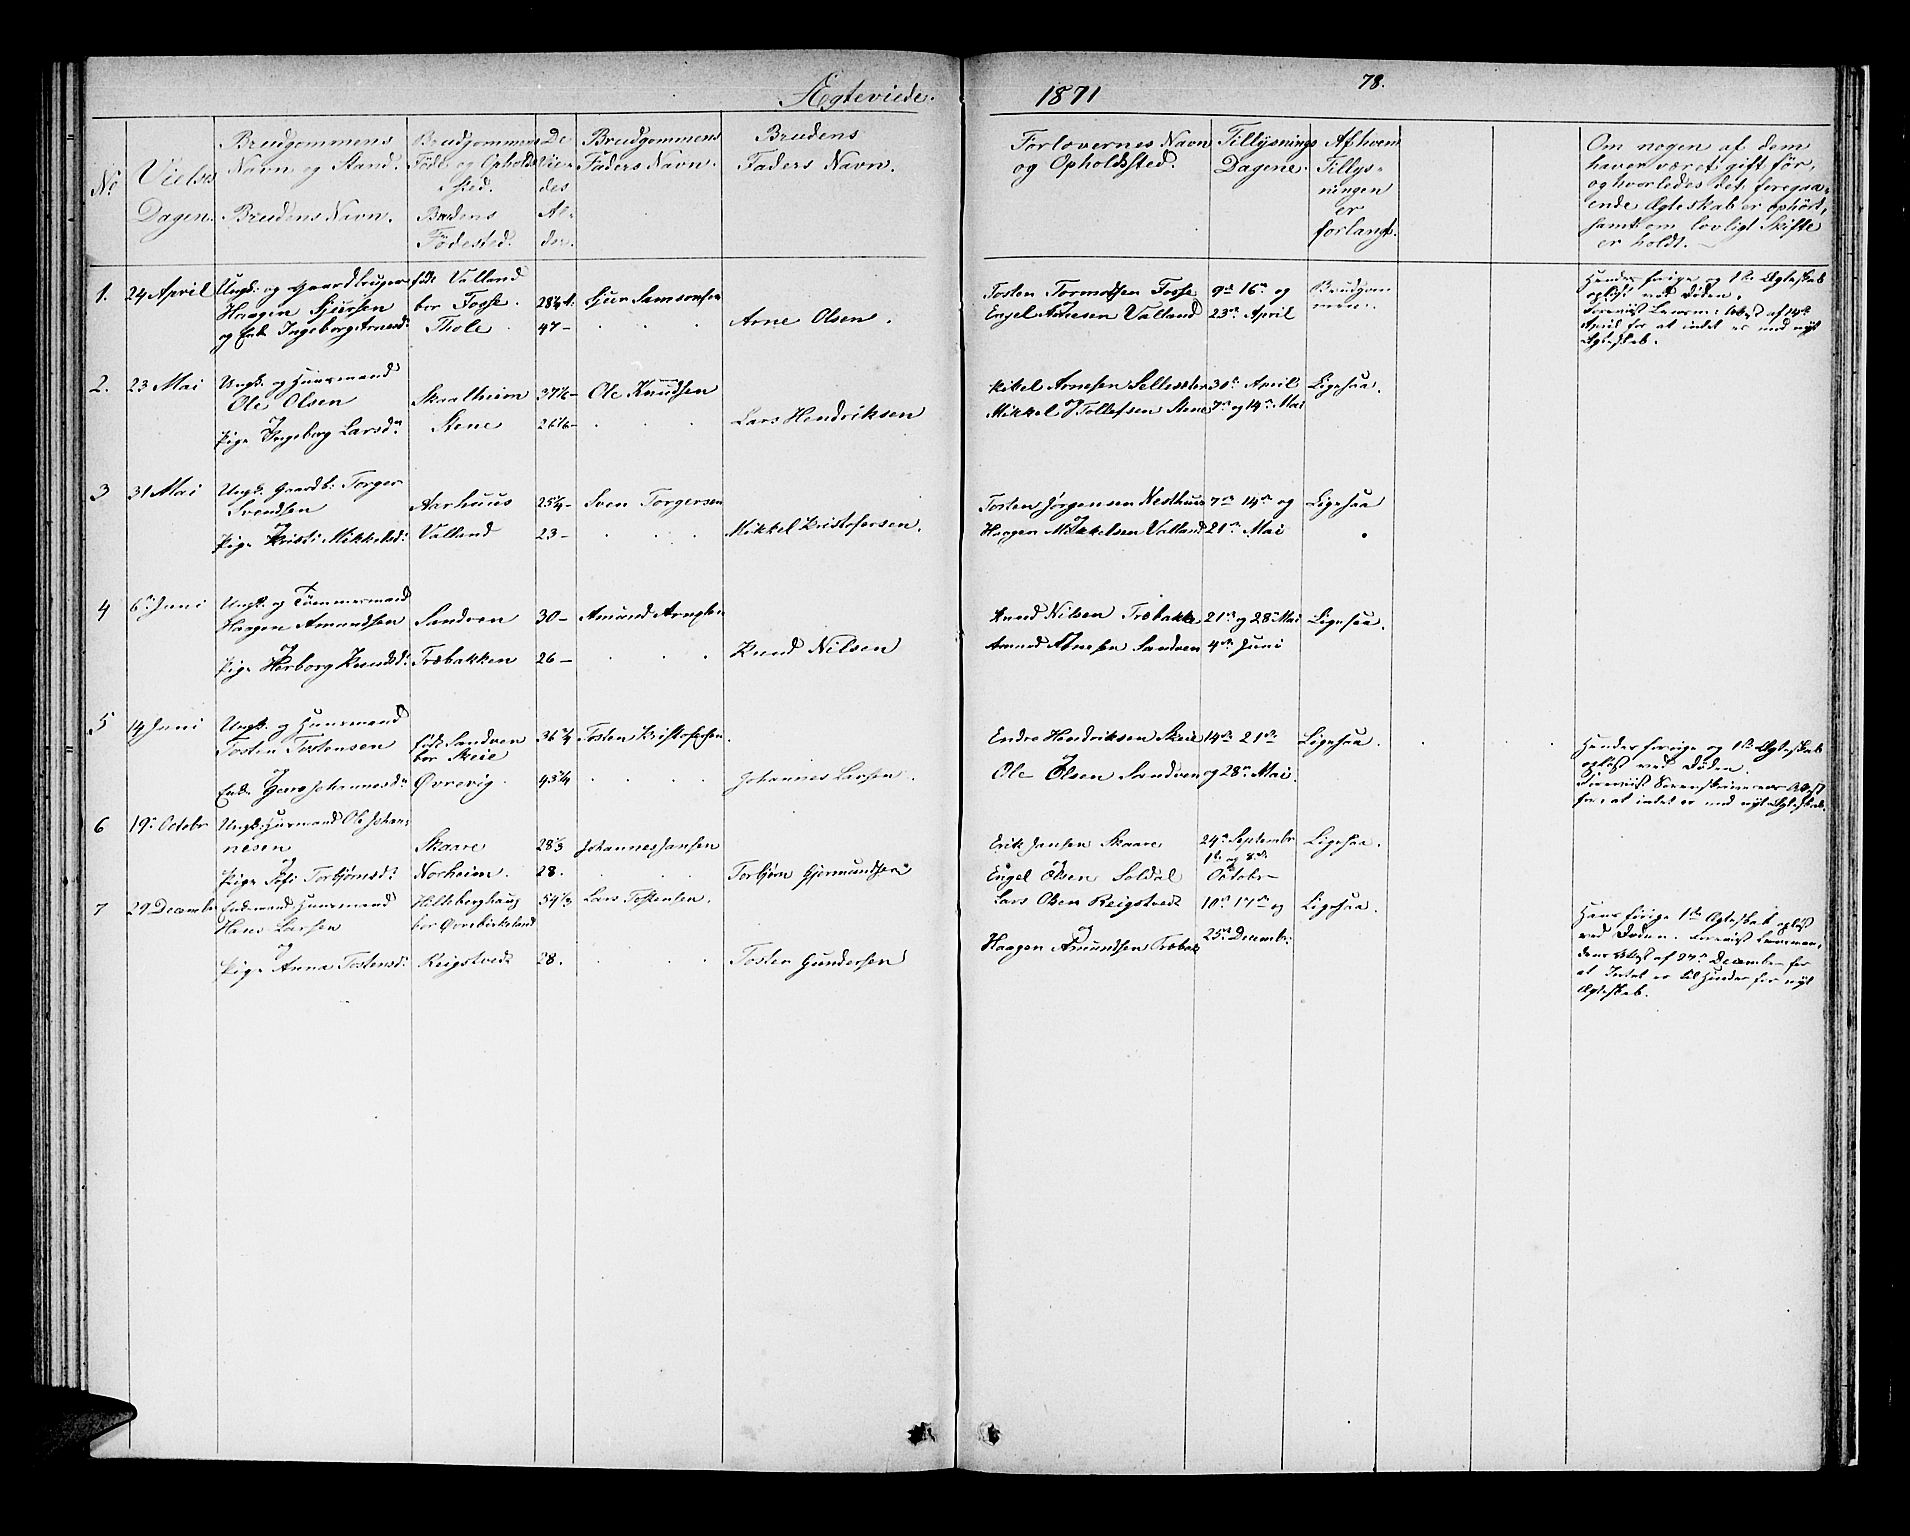 Ægteviede.
1871
78.
No
Vielses
Dagen.
Brudgommens
Navn og Stand.
Brudens Navn.
Brudgommens
Føde og Opholds
Sted.
Brudens
Fødested.
De
Vie-
des
Al-
der.
Brudgommens
Faders Navn.
Brudens
Faders Navn.
Forlovernes Navn
og Opholdsted.
Tillysnings
Dagene.
Af hvem
Tillys-
ningen
er
forlangt.
Om nogen af dem
haver været gift før,
og hvorledes det foregaa-
ende Ægteskab er ophørt,
samt om lovligt Skifte
er holdt.
1. 24 April Ungk. og Gaardbruger
Haagen Sjursen
og Enke Ingeborg Arnesd.
født Valland
bor Fosse.
Thole.
28 1/4 A.
47 -
Sjur Samsonsen
Arne Olsen.
Tosten Tormodsen Fosse
Engel Arnesen Valland
9de 16de og
23de April
Brudgom
men.
Hendes forige og 1ste Ægteskab
opløst ved Døden.
Forevist Lensm: Attest af 14de
April for at intet er mod nyt
Ægteskab.
2. 23 Mai Ungk. og Huusmand
Ole Olsen
og
Pige Ingeborg Larsdr
Skaalheim
Stene
37 1/2 -
26 1/6 -
Ole Knudsen
Lars Hendriksen
Kikel Arnesen Sellesæter
og
Mikkel Tollefsen Stene
30te April
7de og 14de Mai
Ligesaa.
3 31 Mai Ungk. Gaardb: Torger
Svendsen
og
Pige Kristi Mikkelsd:
Aarhuus
Valland
25 1/4 -
23 -
Sven Torgersen
Mikkel Kristofersen.
Tosten Jørgensen Nesthuus
og
Haagen Mikkelsen Valland
7de 14de og
21de Mai
Ligesaa
4 6te Juni Ungk. og Tømmermand
Haagen Amundsen
og
Pige Herborg Knudsd:
Sandven
Træbakken
30 -
26 -
Amund Arnesen
Knud Nilsen
Knud Nilsen Træbakke
Amund Arnesen Sandven
21de og 28de Mai
4de Juni
Ligesaa.
5 14 Juni Ungk. og Huusmand
Tosten Tostensen
og
Enke Johannesdr
født Sandven
bor Skeie
Øvrevig.
36 3/4
43 3/4
Tosten Kristofersen.
Johannes Larsen.
Endre Hendriksen Skeie
og
Ole Olsen Sandven
14de 21de
og 28de Mai.
Ligesaa.
Hendes forige og 1ste Ægteskab
opløst ved Døden.
Forevist Sorenskriverens Attest
for, at intet er mod nyt Ægteskab.
6 19de Octobr Ungk: Husmand Ole Johan-
nesen
og
Pige Sofi Torbjørnsd:
Skaare
Norheim.
28 1/3
28.
Johannes Jansen
Torbjørn Gjermundsen
Erik Jansen Skaare
og
Engel Olsen Soldal
24de Septembr
1ste og 8de
Octobr -
Ligesaa.
7 29 Decembr Enkemand Huusmand
Hans Larsen
og
Pige Anna Tostensd:
Hillsberghaug
bor Øvrebirkeland
Reigstvedt
54 1/3
28.
Lars Tostensen.
Tosten Gundersen
Lars Olsen Reigstvedt
og
Haagen Amundsen Træbak
10de 17de og
25de Decembr.
Ligesaa.
Hans forige 1ste Ægteskab opløst
ved Døden. Forevist Lensman-
dens Attest af 27de December for
at Intet er til Hinder for nyt
Ægteskab.